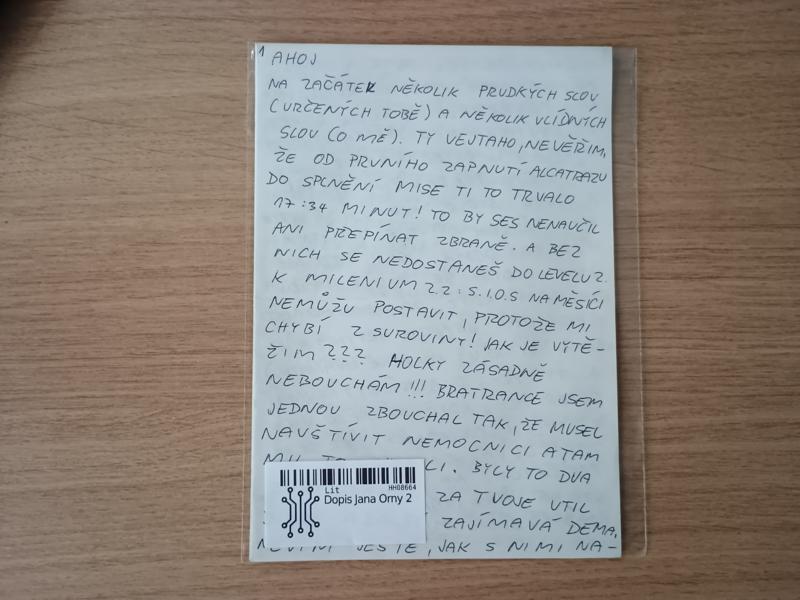 1
AHOJ
NA ZAČÁTEK NĚKOLIK PRUDKÝCH SLOV
(URČENÝCH TOBĚ) A NĚKOLIK VLÍDNÝCH
SLOV (O MĚ). TY VEJTAHO, NEVĚŘIM,
ŽE OD PRVNÍHO ZAPNUTÍ ALCATRAZU
DO SPLNĚNÍ MISE TI TO TRVALO
17:34 MINUT! TO BY SES NENAUČIL
ANI PŘEPÍNAT ZBRANĚ. A BEZ
NICH SE NEDOSTANEŠ DO LEVELU 2.
K MILENIUM 2.2: S.I.O.S NA MĚSÍCI
NEMŮŽU POSTAVIT, PROTOŽE MI
CHYBÍ 2 SUROVINY! JAK JE VYTĚ-
ŽIM ??? HOLKY ZÁSADNĚ
NEBOUCHÁM!!! BRATRANCE JSEM
JEDNOU ZBOUCHAL TAK, ŽE MUSEL
NAVŠTÍVIT NEMOCNICI A TAM
BYLY TO DVA
ZA TVOJE UTIL
ZAJÍMAVÁ DEMA.
JEŠTĚ, JAK S NIMI NA-
Lit
HH08664
Dopis Jana Orny 2